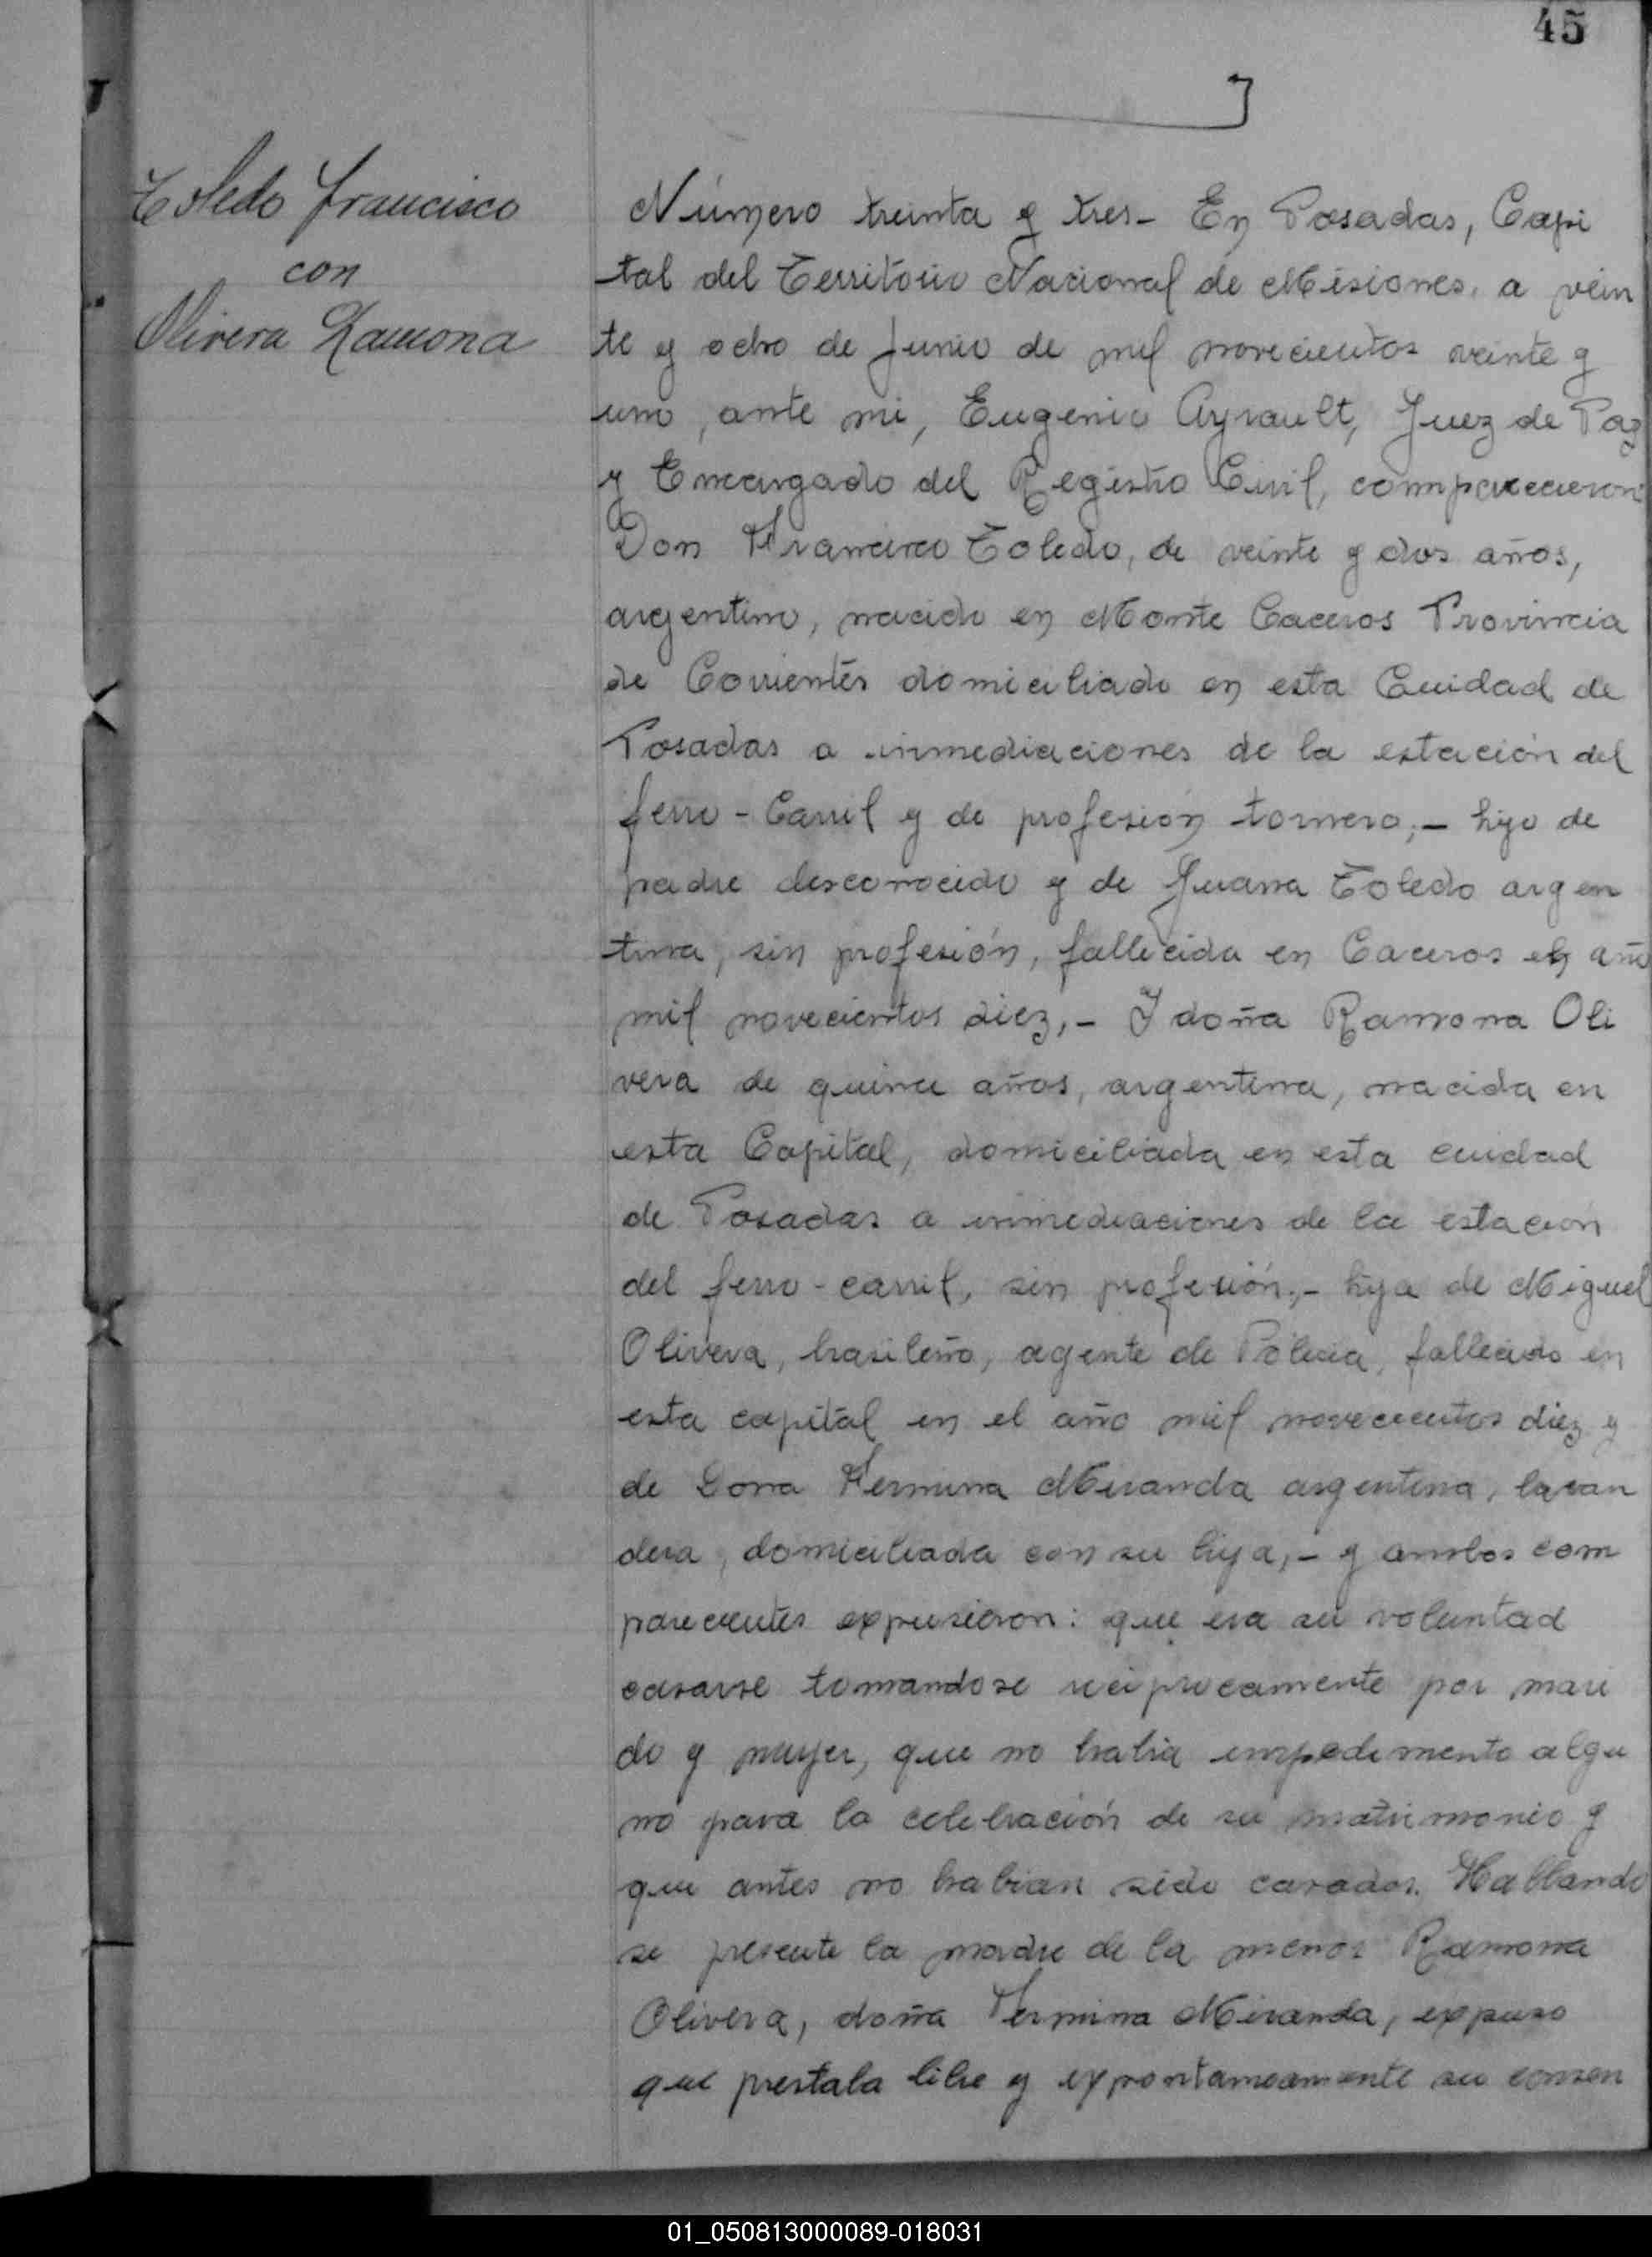 45
Toledo Francisco
con
Olivera Ramona
Número treinta y tres - En Posadas, Capi
tal del Territorio Nacional de Misiones, a vein
te y ocho de Junio de mil novecientos veinte y
uno, ante mi, Eugenio Ayrault, Juez de Paz
y Encargado del Registro Civil, comparecieron
Don Francisco Toledo, de veinte y dos años,
argentino, nacido en Monte Caceros Provincia
de Corrientes domiciliado en esta Cuidad de
Posadas a inmediaciones de la estación del
ferro-Carril y de profesión tornero; - hijo de
padre desconocido y de Juana Toledo argen
tina, sin profesión, fallecida en Caceros en año
mil novecientos diez, - Y doña Ramona Oli
vera de quince años, argentina, nacida en
esta Capital, domiciliada en esta cuidad
de Posadas a inmediaciones de la estacion
del ferro-carril, sin profesión; - hija de Miguel
Olivera, brasileño, agente de Policia, fallecido en
esta capital en el año mil novecientos diez y
de Dona Fermina Miranda argentina, lavan
dera, domiciliada con su hija, - y ambos com
parecientes expusieron: que era su voluntad
casarse tomandose reciprocamente por mari
do y mujer, que no habia impedimento algu
no para la celebración de su matrimonio y
que antes no habian sido casados. Hallando
se presente la madre de la menor Ramona
Olivera, doña Fermina Miranda, expuso
que prestaba libre y expontaneamente su consen
01_050813000089-018031